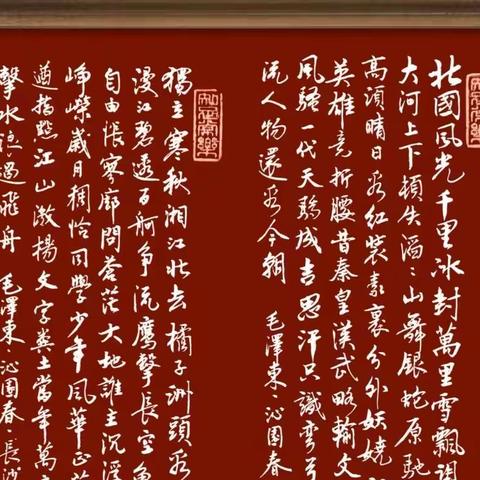 北國風光千里冰封萬里雪飄
大河上下頓失滔滔山舞銀蛇原馳
高須晴日看紅裝素裹分外妖嬈
英雄竞折腰昔秦皇漢武略輸文
風騷一代天驕成吉思汗只識彎弓
流人物還看今朝 毛澤東、沁園春
獨立寒秋湘江北去橘子洲頭看
漫江碧透百舸争流鷹擊長空魚
自由悵寥廓問蒼茫大地誰主沉浮
崢嶸歲月稠恰同學少年風華正茂
遒指點江山激揚文字糞土當年萬
擊水浪遏飛舟 毛澤東、沁園春 長沙